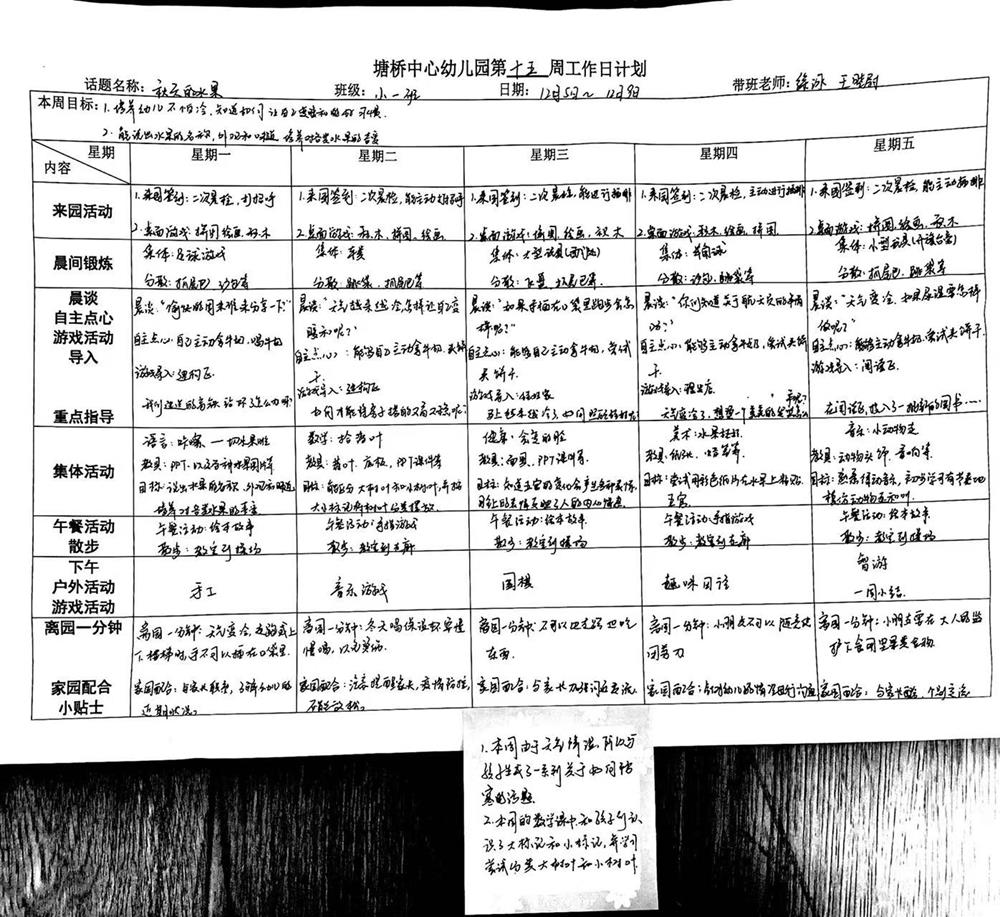 塘桥中心幼儿园第十五周工作日计划
话题名称：秋天的水果 班级：小一班 日期：12月5日～12月9日 带班老师：
本周目标：1.培养幼儿不怕冷，知道如何让自己变暖和的好习惯.
2.能说出水果的名称，外形和味道 培养对各类水果的喜爱
星期 内容 星期一 星期二 星期三 星期四 星期五
来园活动
1.来园签到：二次晨检，打招呼
2.桌面游戏：拼图，绘画，积木
1.来园签到：二次晨检，能主动打招呼
2.桌面游戏：积木，拼图，绘画
1.来园签到：二次晨检，能进行插排
2.桌面游戏：拼图，绘画，积木
1.来园签到：二次晨检，主动进行插排
2.桌面游戏：积木，绘画，拼图
1.来园签到：二次晨检，能主动插排
2.桌面游戏：拼图，绘画，积木
晨间锻炼
集体：足球游戏
分散：抓尾巴、沙包等
集体：
分散：跳袋、抓尾巴等
集体：大型玩具
分散：飞盘、抓尾巴等
集体：
分散：沙包、跳袋等
集体：小型玩具
分散：抓尾巴、跳袋等
晨谈
自主点心
游戏活动
导入
重点指导
晨谈：“愉快的周末谁来分享一下”
自主点心：自己主动拿牛奶，喝牛奶
游戏导入：建构区
晨谈：“天气越来越冷怎样让自己变暖和呢？”
自主点心：能够自己主动拿牛奶，夹饼干
游戏导入：建构区
如何才能将房子搭的又高又稳呢？
晨谈：“如果手插在口袋里跑步会怎样呢？”
自主点心：能够自己主动拿牛奶，尝试夹饼干.
游戏导入：娃娃家
晨谈：“你们知道关于航天员的事情吗？”
自主点心：能够主动拿牛奶，尝试夹饼干
游戏导入：理发店
晨谈：“天气变冷，如果尿湿要怎样做呢？”
自主点心：能够主动拿牛奶，尝试夹饼干
游戏导入：阅读区
在阅读区，投入了一批新的图书……
集体活动
语言：咔嚓，一切水果啦
教具：PPT，以及各种水果图片
目标：说出水果的名称，外形和味道
培养对各类水果的喜爱
数学：拾落叶
教具：落叶，底板，PPT课件等
目标：能区分大树叶和小树叶，并按
大小标记将树叶分类摆放.
健康：会变的脸
教具：面具，PPT课件等
目标：知道五官的变化会产生各种表情
美术：水果娃娃
教具：纸张，炫彩棒等
目标：尝试用彩色纸片在水果上粘贴
五官.
音乐：小动物走
教具：动物头饰，音响等
目标：熟悉律动音乐，初步学习有节奏地
模仿动物走和叫.
午餐活动
散步
午餐活动：绘本故事
散步：教室到操场
午餐活动：手指游戏
散步：教室到走廊
午餐活动：绘本故事
散步：教室到操场
午餐活动：手指游戏
散步：教室到走廊
午餐活动：绘本故事
散步：教室到操场
下午
户外活动
游戏活动
手工
音乐游戏
围棋
趣味阅读
智游
一周小结.
离园一分钟
离园一分钟：天气变冷，走路或上
下楼梯时手不可以插在口袋里.
离园一分钟：冬天喝保温杯要慢
慢喝，以免烫伤.
离园一分钟：不可以边走路边吃
东西.
离园一分钟：小朋友不可以随意使
用剪刀
离园一分钟：小朋友要在大人的监
护下食用坚果类食物
家园配合
小贴士
家园配合：与家长联系，了解幼儿的
近期状况.
家园配合：
家园配合：与家长加强词语交流
家园配合：
家园配合：与家长
1.本周由于天气降温，所以与
孩子生成了一系列关于如何防
寒的话题.
2.本周的数学课中，和孩子们认
识了大标记和小标记，并学习
尝试分类大树叶和小树叶.